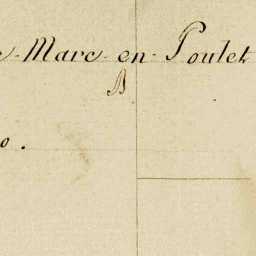 e-Marc-en-Poulet
B
o.